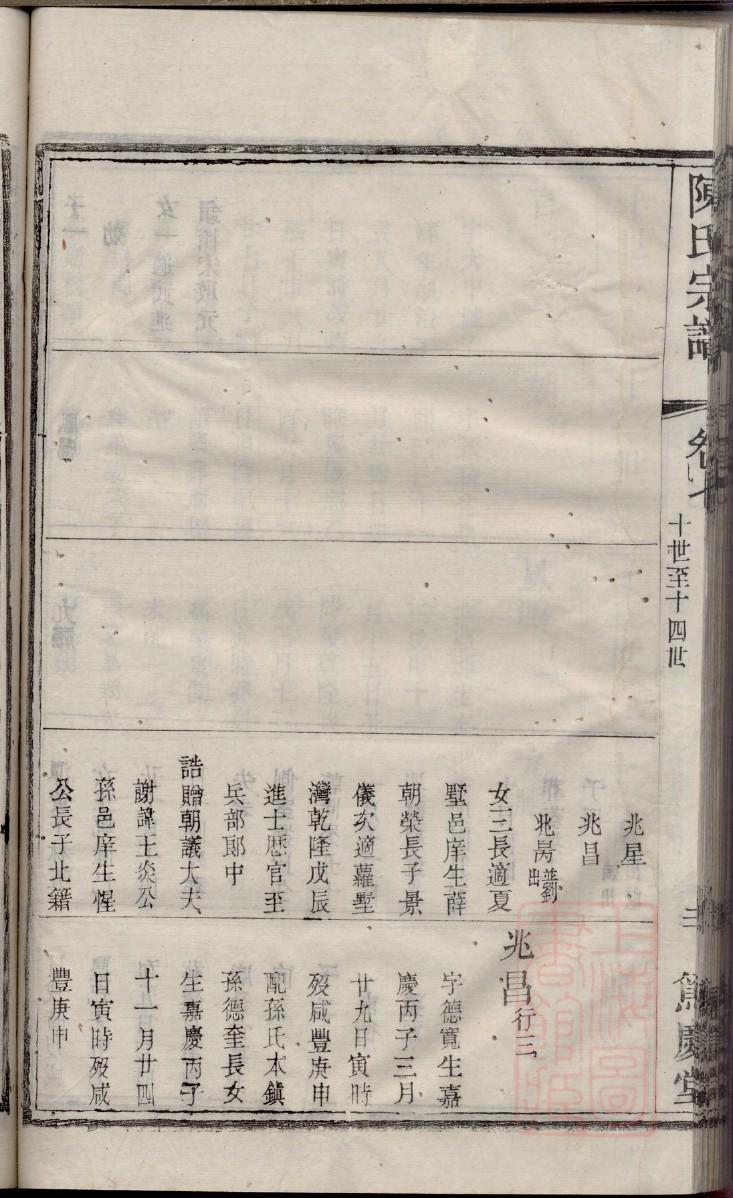 陳氏宗譜
卷七
十世至十四世
兆星
兆昌
兆昺並劉出
女三長適夏
墅邑庠生薛
朝榮長子景
儀次適蘿墅
灣乾隆戊辰
進士歴官至
兵部郎中
誥贈朝議大夫
謝諱王炎公
孫邑庠生惺
公長子北籍
兆昌行三
字德寬生嘉
慶丙子三月
廿九日寅時
歿咸豐庚申
配孫氏本鎮
孫德奎長女
生嘉慶丙子
十一月廿四
日寅時歿咸
豐庚申